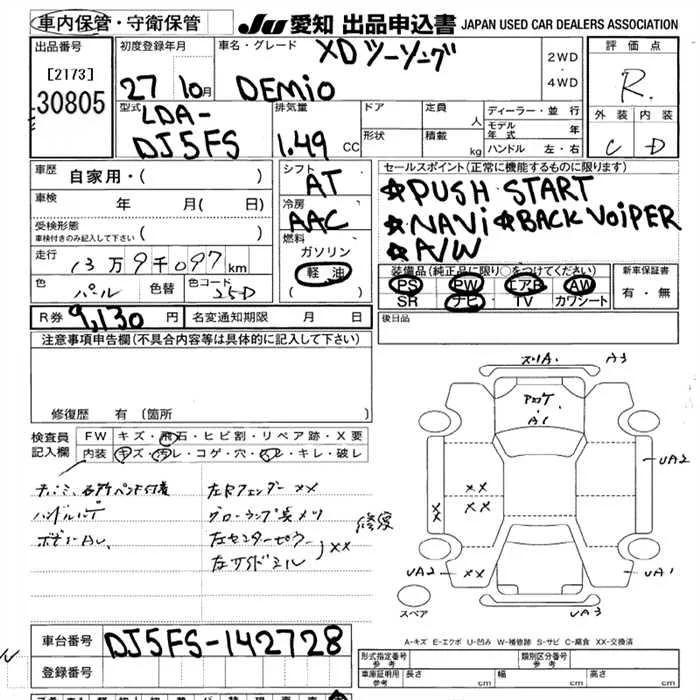 車内保管・守衛保管
JU 愛知 出品申込書 JAPAN USED CAR DEALERS ASSOCIATION
出品番号
[2173]
30805
初度登録年月
27 10月
車名・グレード
XDツーリング
DEMiO
2WD
・
4WD
評価点
R
外装 内装
C D
型式
LDA-
DJ5FS
排気量
1.49 CC
ドア
形状
定員 人
積載 kg
ディーラー・並行
モデル年式 年
ハンドル 左・右
車歴 自家用・( )
車検 年 月( 日)
受検形態
車検付きのみ記入して下さい ( )
走行 13万9千097km
色 パール 色替 色コード 25D
シフト
AT
冷房
AAC
燃料
ガソリン
軽油
( )
セールスポイント(正常に機能するものに限ります)
☆PUSH START
☆NAVi ☆BACK VOiPER
☆A/W
装備品(純正品に限り○をつけてください)
PS PW エアB AW
SR ナビ TV カワシート
新車保証書
有・無
R券 9,130円 名変通知期限 月 日
後日品
注意事項申告欄(不具合内容等は具体的に記入して下さい)
修復歴 有(箇所
検査員
記入欄
FW キズ・飛石・ヒビ割・リペア跡・X要
内装 キズ・汚レ・コゲ・穴・スレ・キレ・破レ
左Fフェンダー XX
左センターピラー
XX
修復
A3
A1
UA2
XX
XX
XX
UA2
XX
UA1
UA3
スペア
A-キズ E-エクボ U-凹み W-補修跡 S-サビ C-腐食 XX-交換済
車台番号 DJ5FS-142728
登録番号
形式指定番号
参考
類別区分番号
参考
車庫証明用
参考
長さ cm 幅 cm 高さ cm